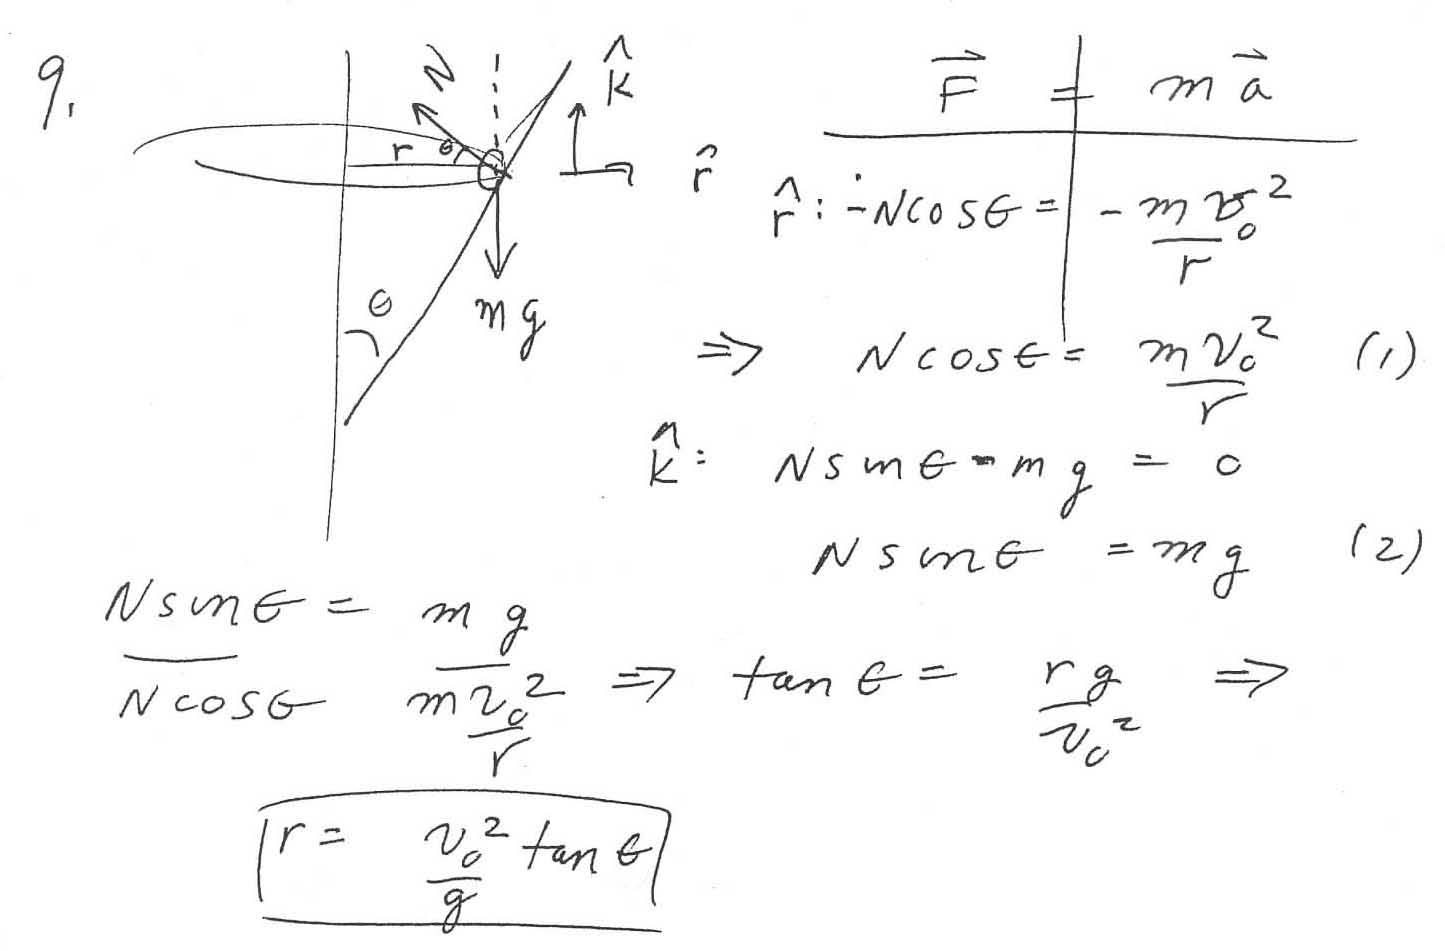 9.
N
k̂
r θ
r̂
θ
mg
F⃗ = m a⃗
r̂: -N cos θ = - m v₀² / r
⇒ N cos θ = m v₀² / r (1)
k̂: N sin θ - m g = 0
N sin θ = m g (2)
N sin θ / N cos θ = m g / (m v₀² / r) ⇒ tan θ = r g / v₀² ⇒
r = v₀² / g tan θ